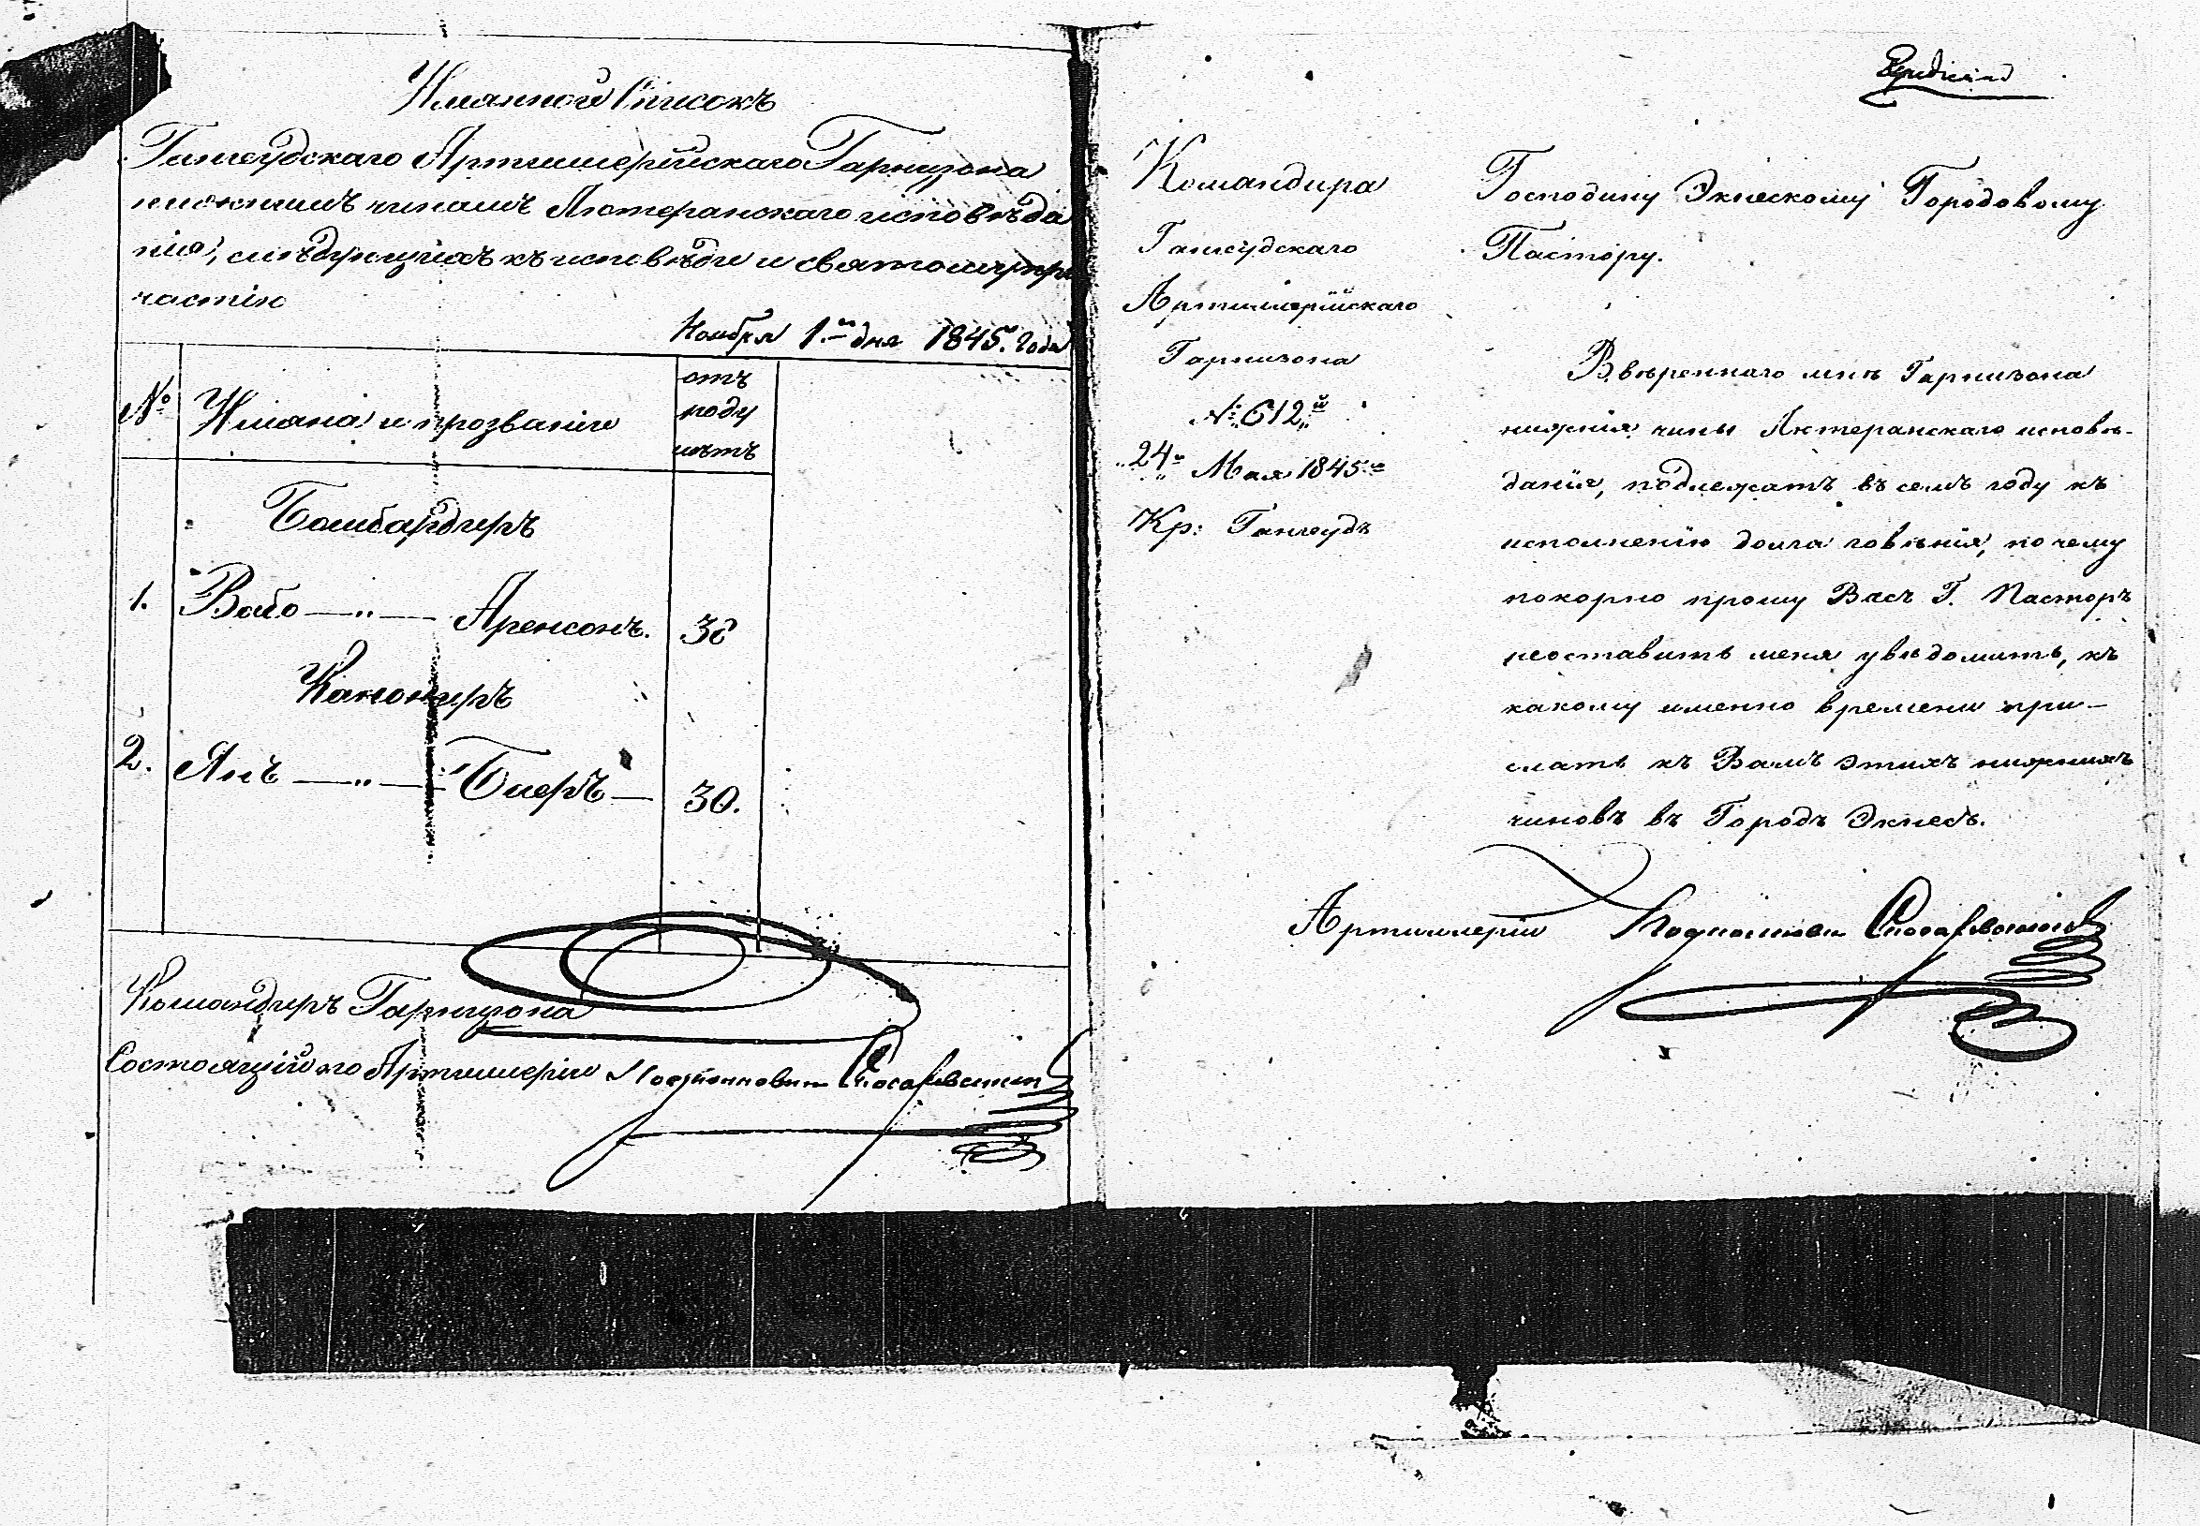 Имянной Списокъ
Гангеудскаго Артиллерійскаго Гарнизона
нижнимъ чинамъ Лютеранскаго исповѣда
нія, слѣдующихъ къ исповѣди и святому при
частію
Ноября 1го дня 1845. года
№ Имяна и прозваніи отъ роду лѣтъ
Бомбардиръ
1. Вабо —„— Аренсонъ. 36
Канонеръ
2. Янъ —„— Биеръ — 30.
Командиръ Гарнизона
Состоящій по Артиллеріи Подполковникъ
Командира
Гангеудскаго
Артиллерійскаго
Гарнизона
№ 612й
„24го„ Мая 1845го
Кр: Гангеудъ
Господину Экнескому Городовому
Пастору.
Ввѣреннаго мнѣ Гарнизона
нижнія чины Лютеранскаго исповѣ-
данія, подлежатъ въ семъ году къ
исполненію долга говѣнія, по чему
покорно прошу Васъ Г. Пасторъ
неоставить меня увѣдомить, къ
какому именно времени при-
слать къ Вамъ этихъ нижнихъ
чиновъ въ Городъ Экнесъ.
Артиллеріи Подполковн